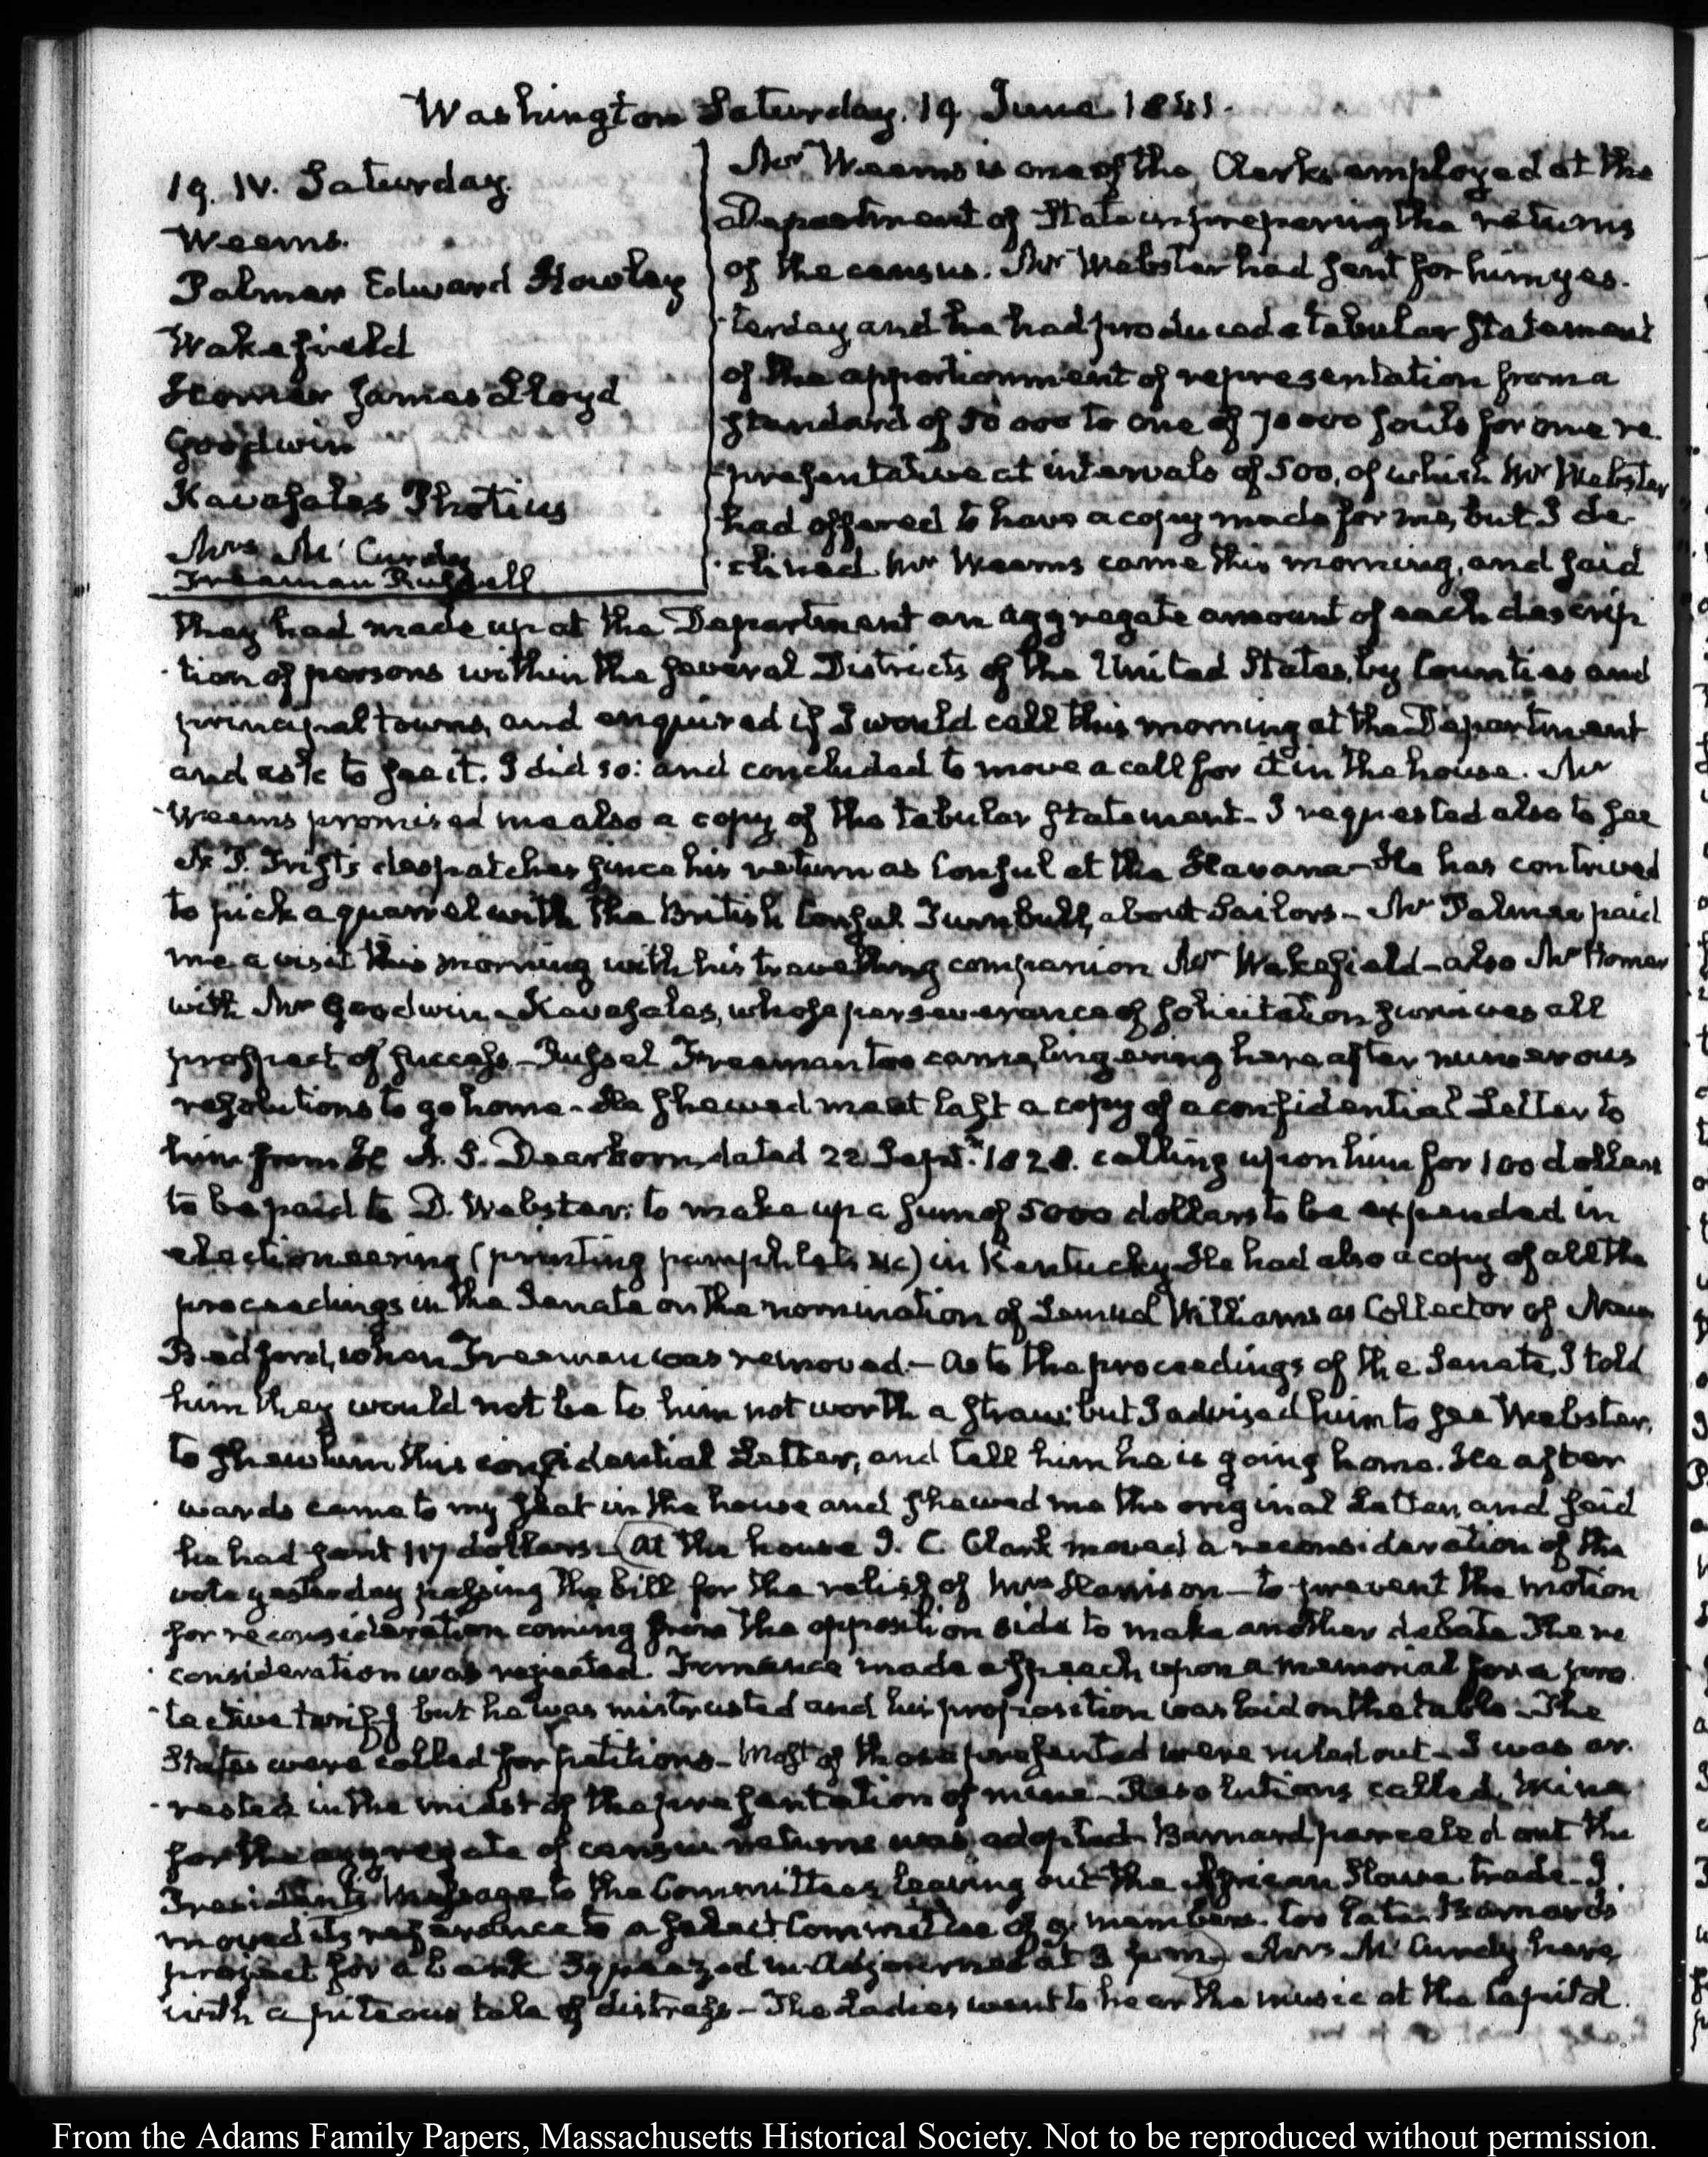 Washington Saturday. 19 June 1841.
19. IV. Saturday.
Weems.
Palmer Edward Howley
Wakefield
Homer James Lloyd
Goodwin
Kavasales Photius
Mrs McCurdy
Freeman Russell
Mr Weems is one of the Clerks employed at the
Department of State in preparing the returns
of the census. Mr Webster had sent for him yes-
terday, and he had produced a tabular statement
of the apportionment of representation from a
standard of 50 000 to one of 70 000 souls for one re-
presentative at intervals of 500, of which Mr Webster
had offered to have a copy made for me, but I de-
clined. Mr Weems came this morning, and said
they had made up at the Department an aggregate amount of each descrip
tion of persons within the several Districts of the United States, by Counties and
principal towns, and enquired if I would call this morning at the Department
and ask to see it. I did so: and concluded to move a call for it in the house. Mr
Weems promised me also a copy of the tabular statement - I requested also to see
N. P. Trist's despatches since his return as Consul at the Havana - He has contrived
to pick a quarrel with the British Consul Turnbull, about Sailors - Mr Palmer paid
me a visit this morning with his travelling companion Mr Wakefield - also Mr Homer
with Mr Goodwin - Kavasales, whose perseverance of solicitation survives all
prospect of success - Russel Freeman too came, lingering here after numerous
resolutions to go home - He shewed me at last a copy of a confidential Letter to
him from H. A. S. Dearborn, dated 22 Septr. 1828. calling upon him for 100 dollars
to be paid to D. Webster: to make up a sum of 5000 dollars to be expended in
electioneering (printing pamphlets &c) in Kentucky - He had also a copy of all the
proceedings in the Senate on the nomination of Lemuel Williams as Collector of New
Bedford, when Freeman was removed. - As to the proceedings of the Senate, I told
him they would not be to him not worth a straw; but I advised him to see Webster,
to shew him this confidential Letter, and tell him he is going home. He after
wards came to my seat in the house and shewed me the original Letter, and said
he had sent 117 dollars. At the house J. C. Clark moved a reconsideration of the
vote yesterday passing the bill for the relief of Mrs Harrison - to prevent the motion
for reconsideration coming from the opposition side to make another debate. The re
consideration was rejected. Fornance made a speech upon a memorial for a pro
tective tariff but he was mistrusted and his proposition was laid on the table - The
States were called for petitions - Most of those presented were ruled out - I was ar-
rested in the midst of the presentation of mine - Resolutions called. Mine
for the aggregate of census returns was adopted. Barnard parceled out the
President's Message to the Committees leaving out the African Slave trade - I
moved its reference to a select Committee of 9 members. too late. Barnard's
project for a bank squeezed in Adjourned at 3 p.m. Mrs McCurdy here,
with a piteous tale of distress - The Ladies went to hear the music at the Capitol.
From the Adams Family Papers, Massachusetts Historical Society. Not to be reproduced without permission.